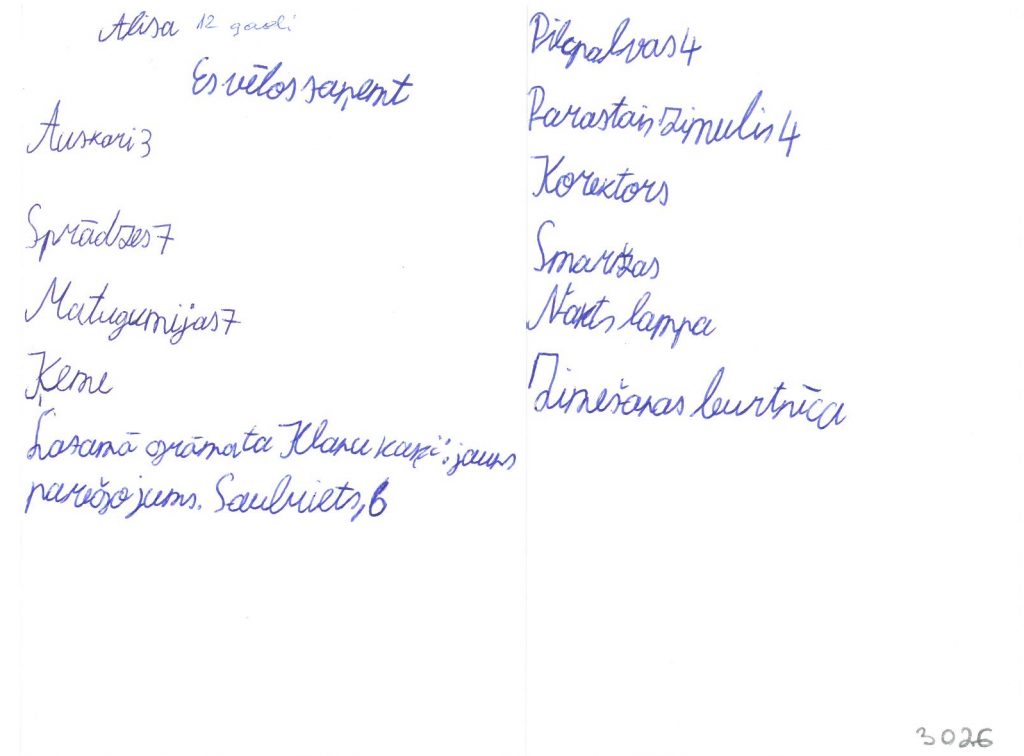 Alisa 12 gadi
Es vēlos saņemt
Auskari 3
Sprādzes 7
Matugumijas 7
Ķeme
Lasamā grāmata Klanu kaķi: jauns
pareģojums. Saulriets, 6
Pildpalvas 4
Parastais zīmulis 4
Korektors
Smaržas
Nakts lampa
Zīmēšanas burtnīca
3026